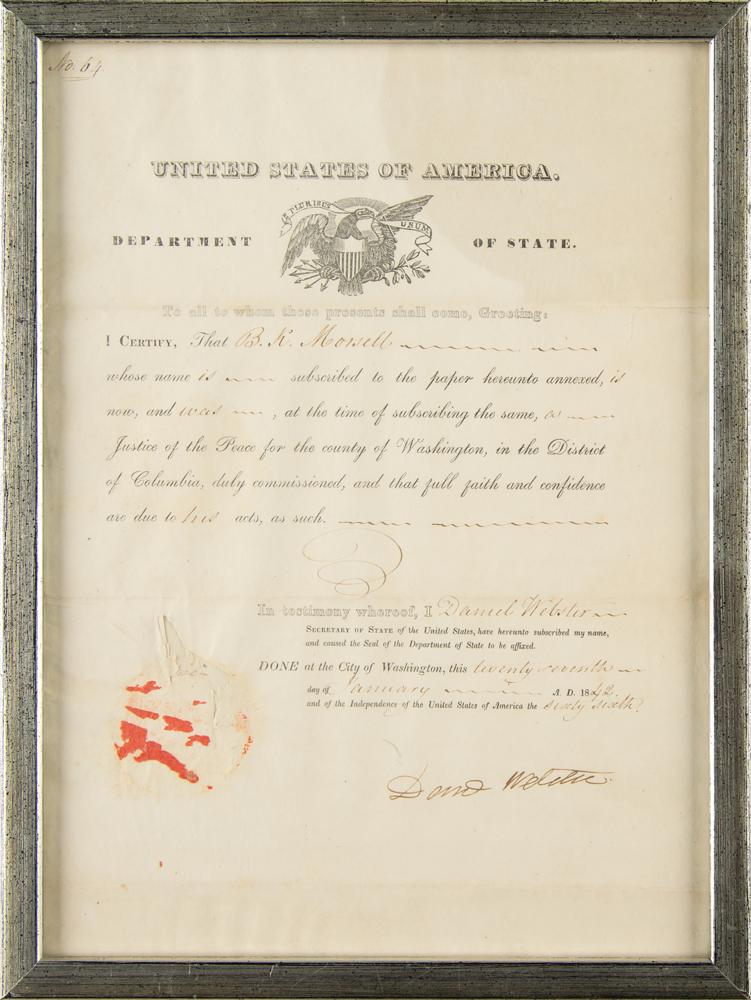 No. 64.
UNITED STATES OF AMERICA.
E PLURIBUS UNUM
DEPARTMENT OF STATE.
To all to whom these presents shall come, Greeting:
I CERTIFY, That B. K. Morsell
whose name is subscribed to the paper hereunto annexed, is
now, and was , at the time of subscribing the same, a
Justice of the Peace for the county of Washington, in the District
of Columbia, duly commissioned, and that full faith and confidence
are due to his acts, as such.
In testimony whereof, I Daniel Webster
SECRETARY OF STATE of the United States, have hereunto subscribed my name,
and caused the Seal of the Department of State to be affixed.
DONE at the City of Washington, this twenty seventh
day of January A. D. 1842.
and of the Independence of the United States of America the sixty sixth.
Danl Webster